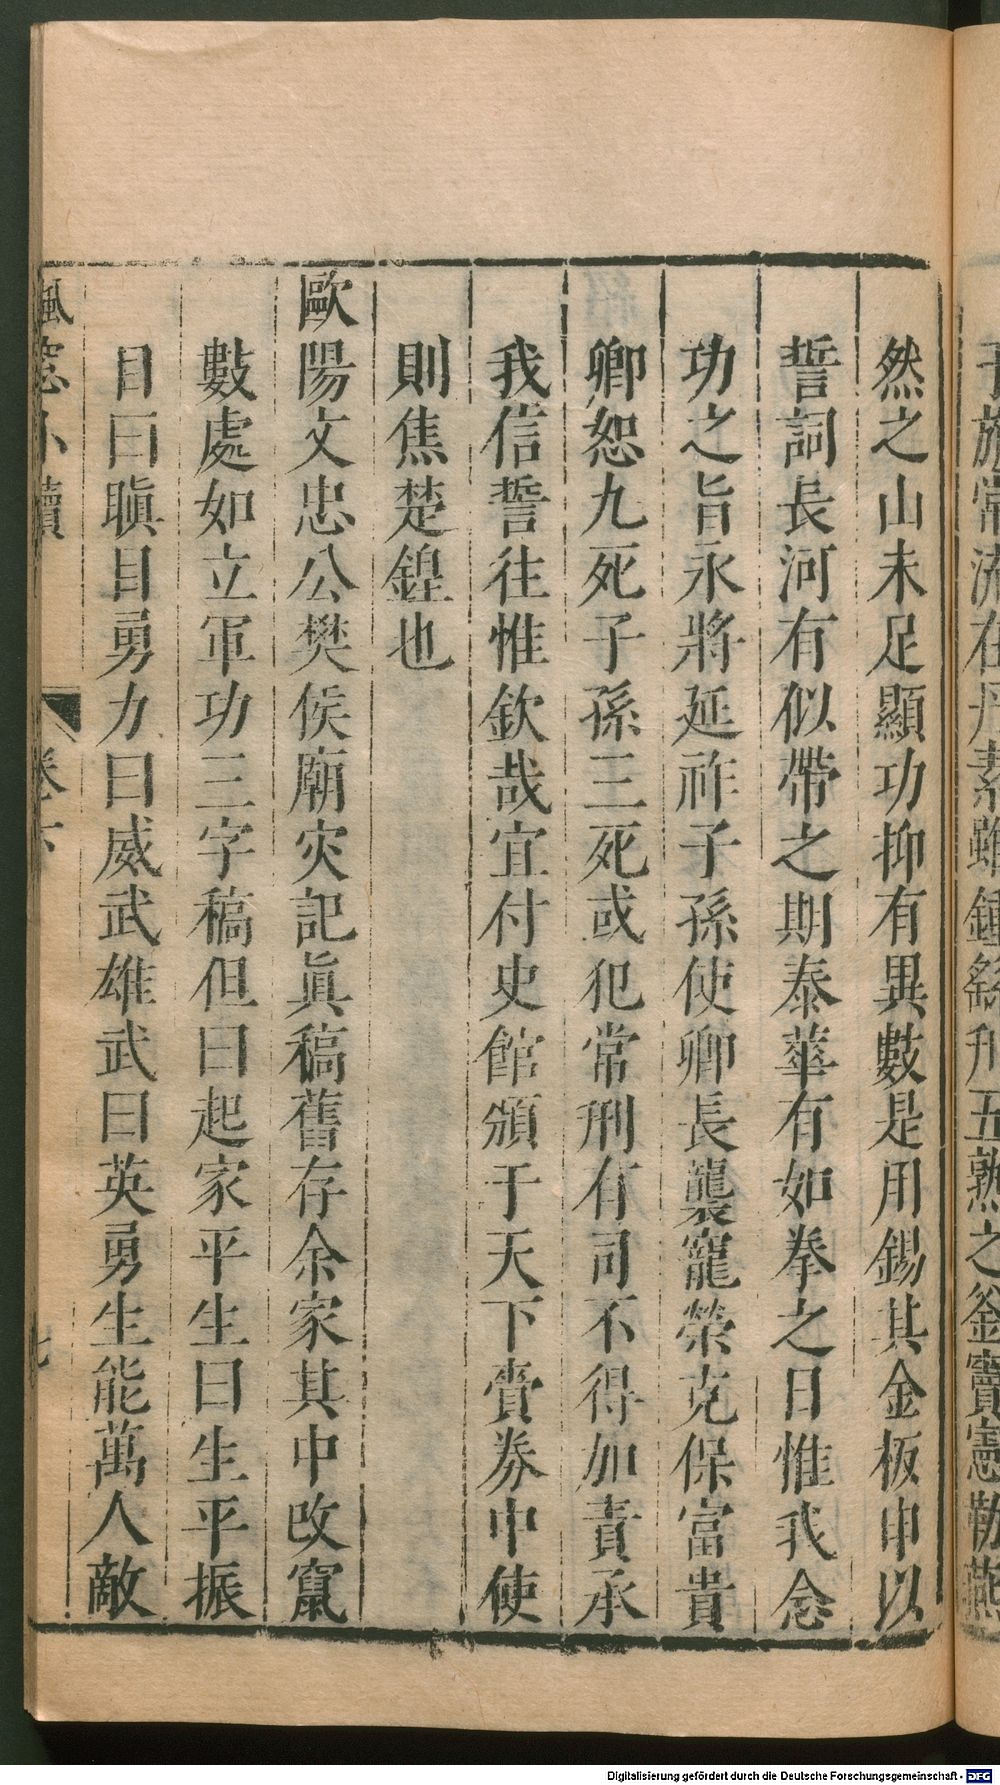 然之山未足顯功抑有異數是用錫其金板申以
誓詞長河有似帶之期泰華有如拳之日惟我念
功之旨永將延祚子孫使卿長襲寵榮克保富貴
卿恕九死子孫三死或犯常刑有司不得加責承
我信誓往惟欽哉宜付史館頒于天下賫券中使
則焦楚鍠也
歐陽文忠公樊侯廟灾記眞稿舊存余家其中改竄
數處如立軍功三字稿但曰起家平生曰生平振
目曰瞋目勇力曰威武雄武曰英勇生能萬人敵
楓窓小牘
卷六
七
子旂常流在丹素雖鍾繇刋五熟之釜竇憲勒燕
Digitalisierung gefördert durch die Deutsche Forschungsgemeinschaft - DFG